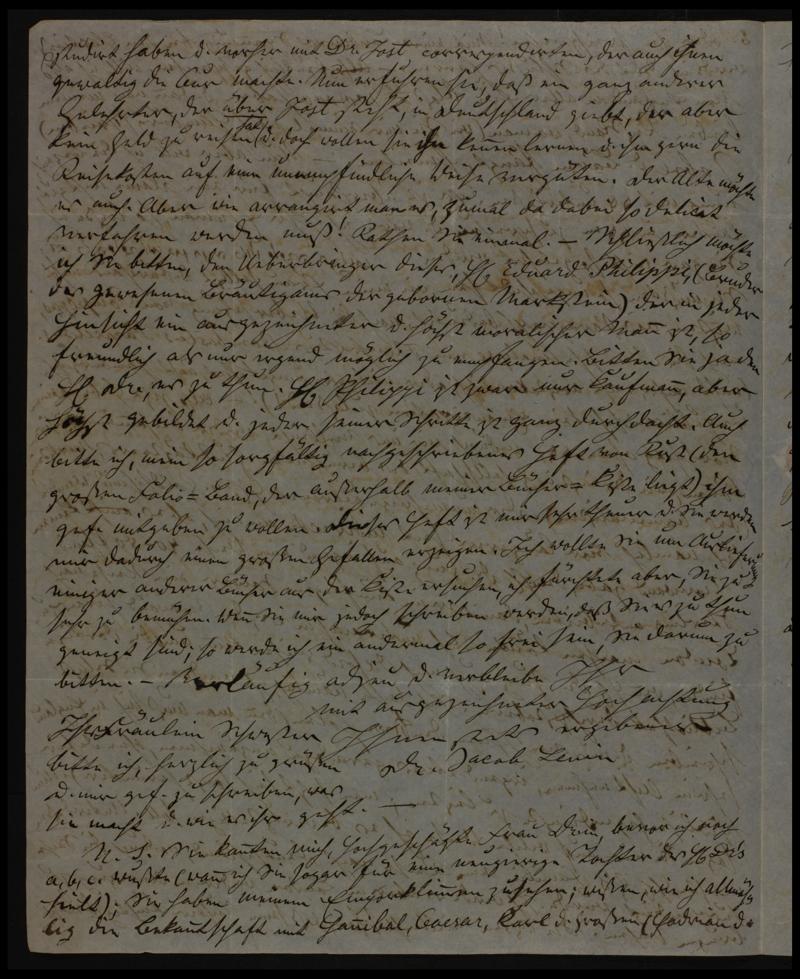 studirt haben d. vorher mit Dr. Jost correspondirten, der auch ihnen
gewaltig die Cur machte. Nun erfuhren sie, daß ein ganz anderer
Gelehrter, der über Jost steht, in Deutschland giebt, der aber
kein Geld zu reisen hat d. doch wollen sie ihn kennen lernen d. ihm gern die
Reisekosten auf eine unempfindliche Weise vergüten. Der Alte möchte
es auch. Aber wie arrangirt man es, zumal da dabei so delicat
verfahren werden muß! Rathen Sie einmal. — Schließlich möchte
ich Sie bitten, den Ueberbringer dieses, H. Eduard Philippi (Bruder
des gewesenen Bräutigams der gebornen Markstein) der in jeder
Hinsicht ein ausgezeichneter d. höchst moralischer Mann ist, so
freundlich als nur irgend möglich zu empfangen. Bitten Sie ja den
H. Dr., es zu thun. H. Philippi ist zwar nur Kaufmann, aber
höchst gebildet d. jeder seiner Schritte ist ganz durchdacht. Auch
bitte ich, mein so sorgfältig nachgeschriebenes Heft von (den
großen Folio=Band, der außerhalb meiner Bücher=Kiste liegt) ihm
gef. mitgeben zu wollen. Dieses Heft ist mir sehr theuer d. Sie werden
mir dadurch einen großen Gefallen erzeigen. Ich wollte Sie um Auslieferung
einiger anderer Bücher aus der Kiste ersuchen, ich fürchtete aber, Sie zu
sehr zu bemühen. Wenn Sie mir jedoch schreiben werden, daß Sie es zu thun
geneigt sind, so werde ich ein andermal so frei sein, Sie darum zu
bitten. — Vorläufig adjeu d. verbleibe Ihr
mit ausgezeichneter Hochachtung
Ihnen stets ergebener
Dr. Jacob Levin
Ihr Fräulein Schwester
bitte ich, herzlich zu grüßen
d. mir gef. zu schreiben, was
sie macht d. wie es ihr geht. —
N. S. Sie kannten mich, hochgeschätzte Frau, bevor ich noch
a, b, c. wußte (wann ich Sie sogar für eine neugierige Tochter des H. Dr's
hielt). Sie haben meinem Emporklimmen zusehen; wissen, wie ich allmäh-
lig die Bekanntschaft mit Hannibal, Caesar, Karl d. Großen (Hadrian d.